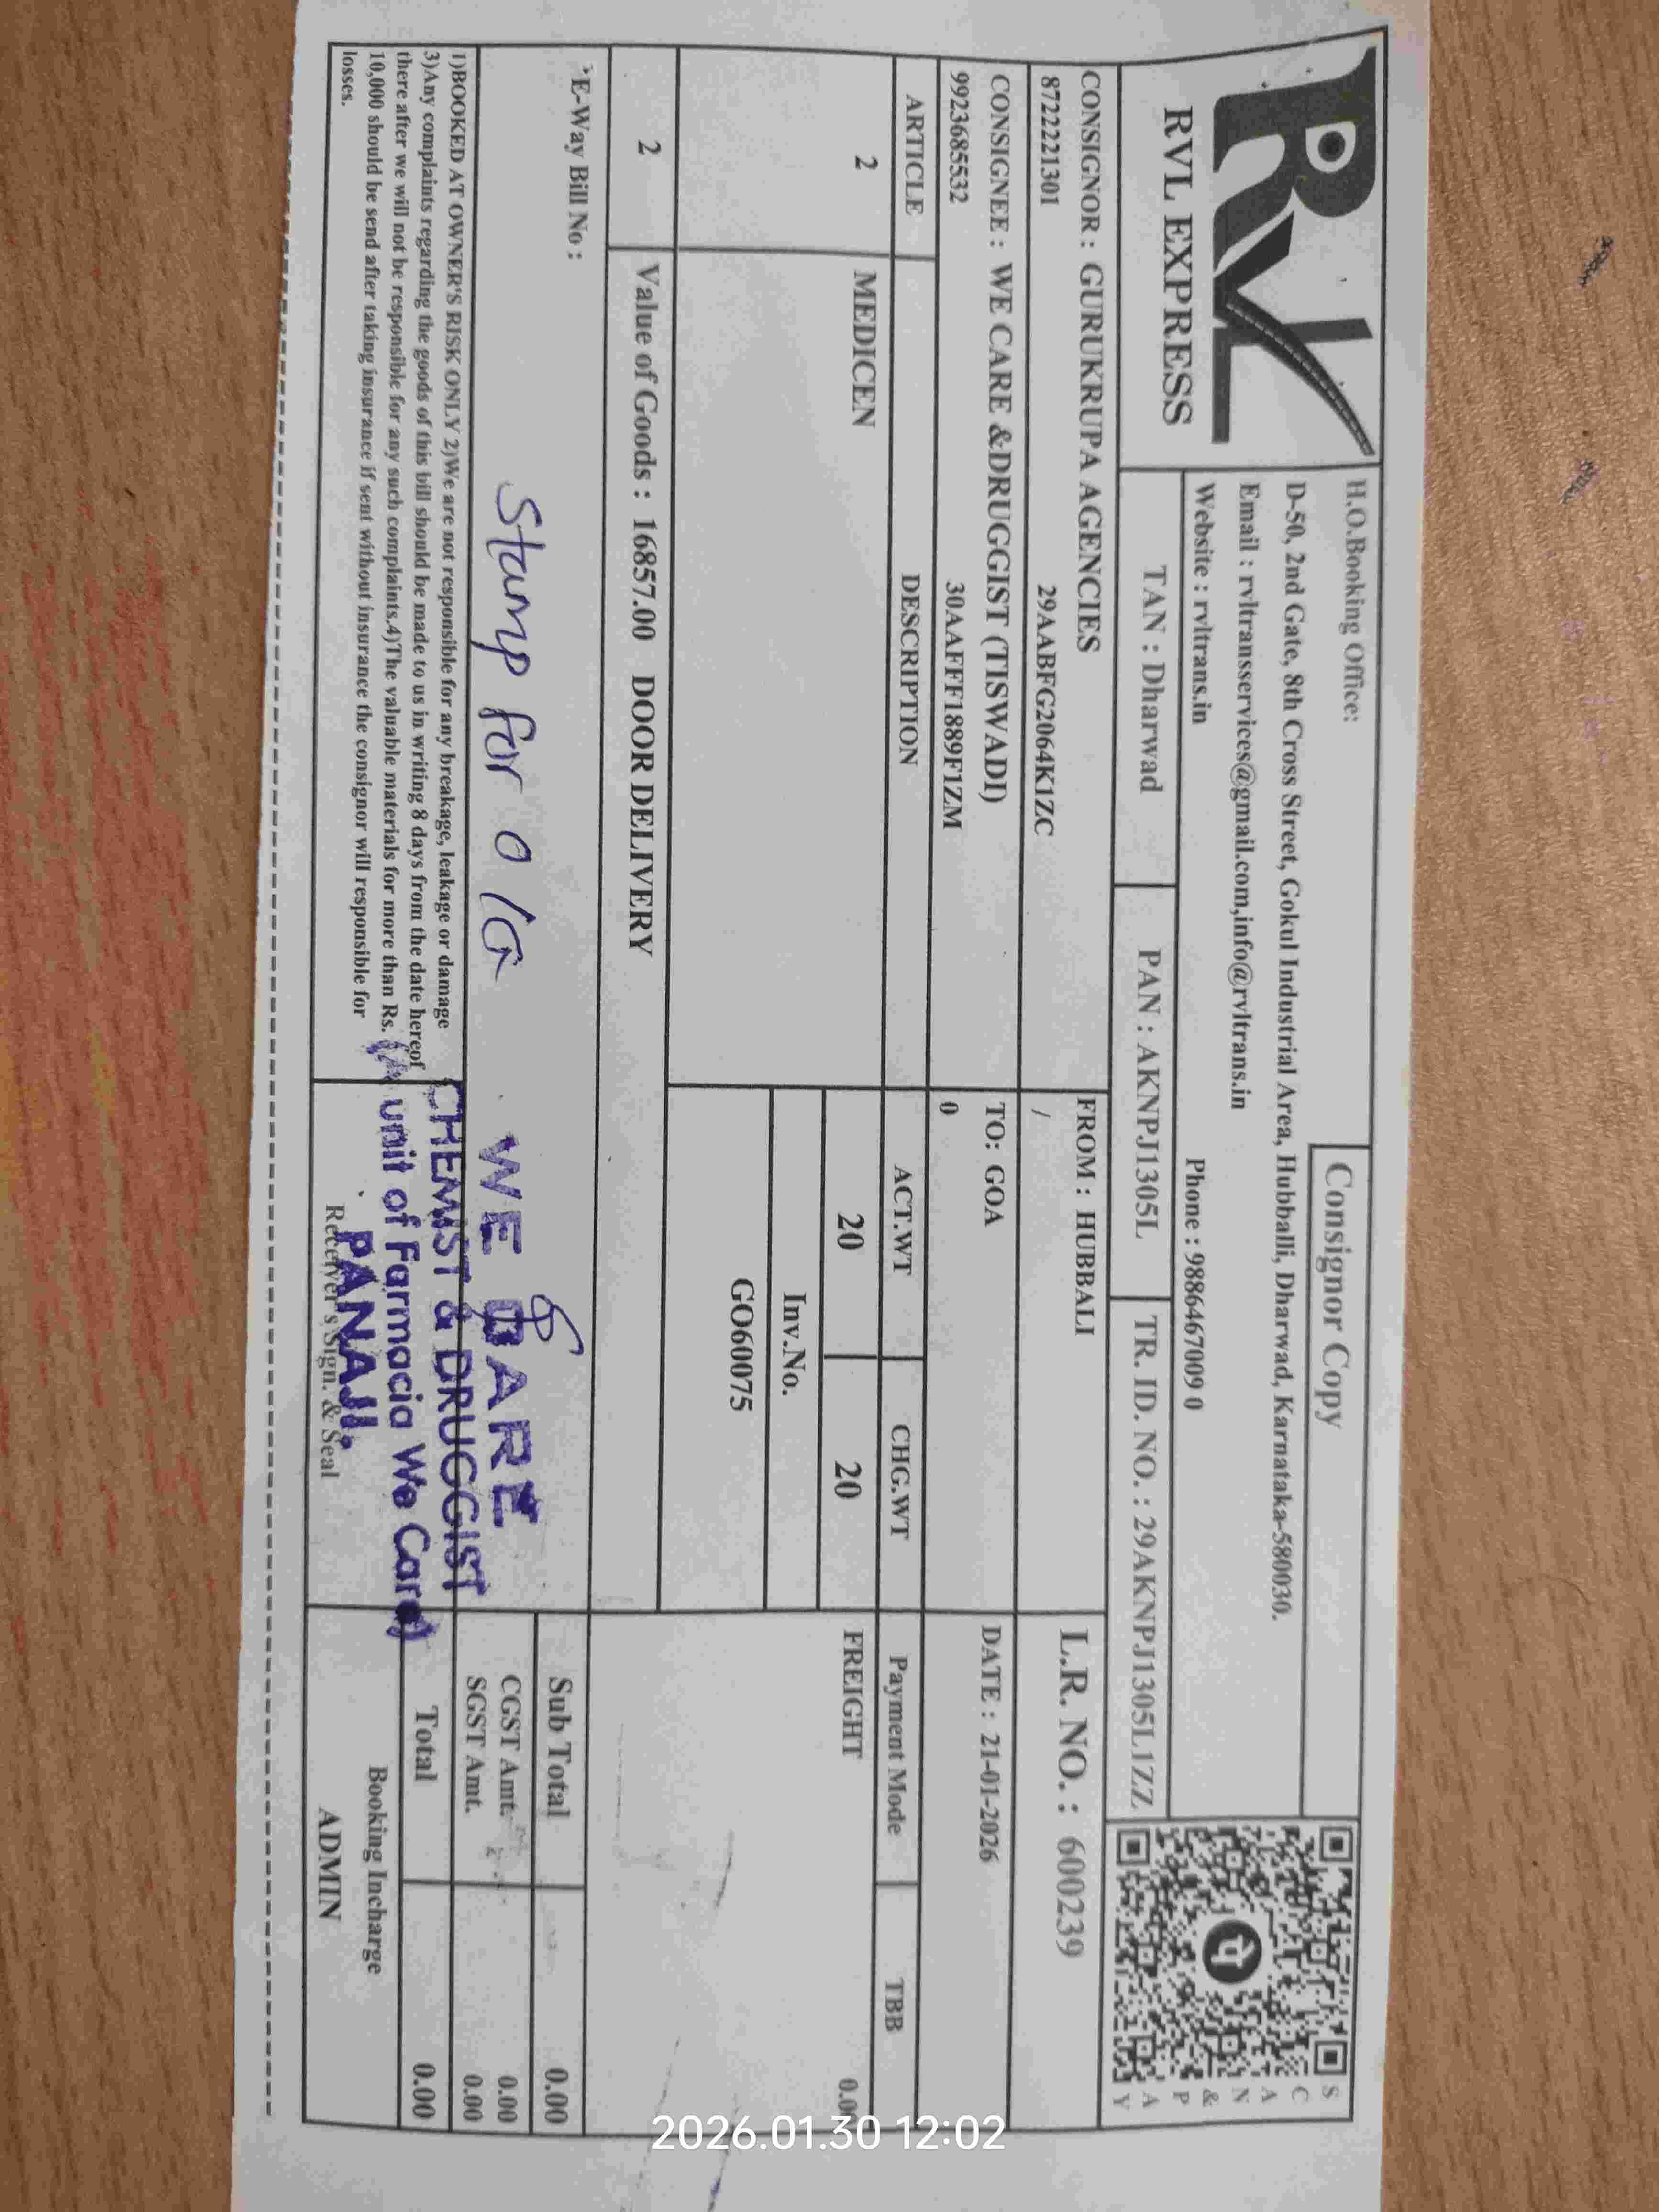 RVL
RVL EXPRESS
H.O.Booking Office:
Consignor Copy
D-50, 2nd Gate, 8th Cross Street, Gokul Industrial Area, Hubballi, Dharwad, Karnataka-580030.
Email : rvltransservices@gmail.com,info@rvltrans.in
Website : rvltrans.in Phone : 9886467009 0
SCAN & PAY
TAN : Dharwad PAN : AKNPJ1305L TR. ID. NO. : 29AKNPJ1305L1ZZ
CONSIGNOR : GURUKRUPA AGENCIES FROM : HUBBALI L.R. NO. : 600239
8722221301 29AABFG2064K1ZC /
CONSIGNEE : WE CARE &DRUGGIST (TISWADI) TO: GOA DATE : 21-01-2026
9923685532 30AAFFF1889F1ZM 0
ARTICLE DESCRIPTION ACT.WT CHG.WT Payment Mode TBB
2 MEDICEN 20 20 FREIGHT 0.00
Inv.No.
GO60075
2 Value of Goods : 16857.00 DOOR DELIVERY
*E-Way Bill No :
Sub Total 0.00
CGST Amt. 0.00
SGST Amt. 0.00
Total 0.00
Stamp for O/G
WE CARE
CHEMIST & DRUGGIST
unit of Farmacia We Care)
PANAJI.
1)BOOKED AT OWNER'S RISK ONLY 2)We are not responsible for any breakage, leakage or damage
3)Any complaints regarding the goods of this bill should be made to us in writing 8 days from the date hereof
there after we will not be responsible for any such complaints.4)The valuable materials for more than Rs.
10,000 should be send after taking insurance if sent without insurance the consignor will responsible for
losses.
Receiver's Sign. & Seal
Booking Incharge
ADMIN
2026.01.30 12:02